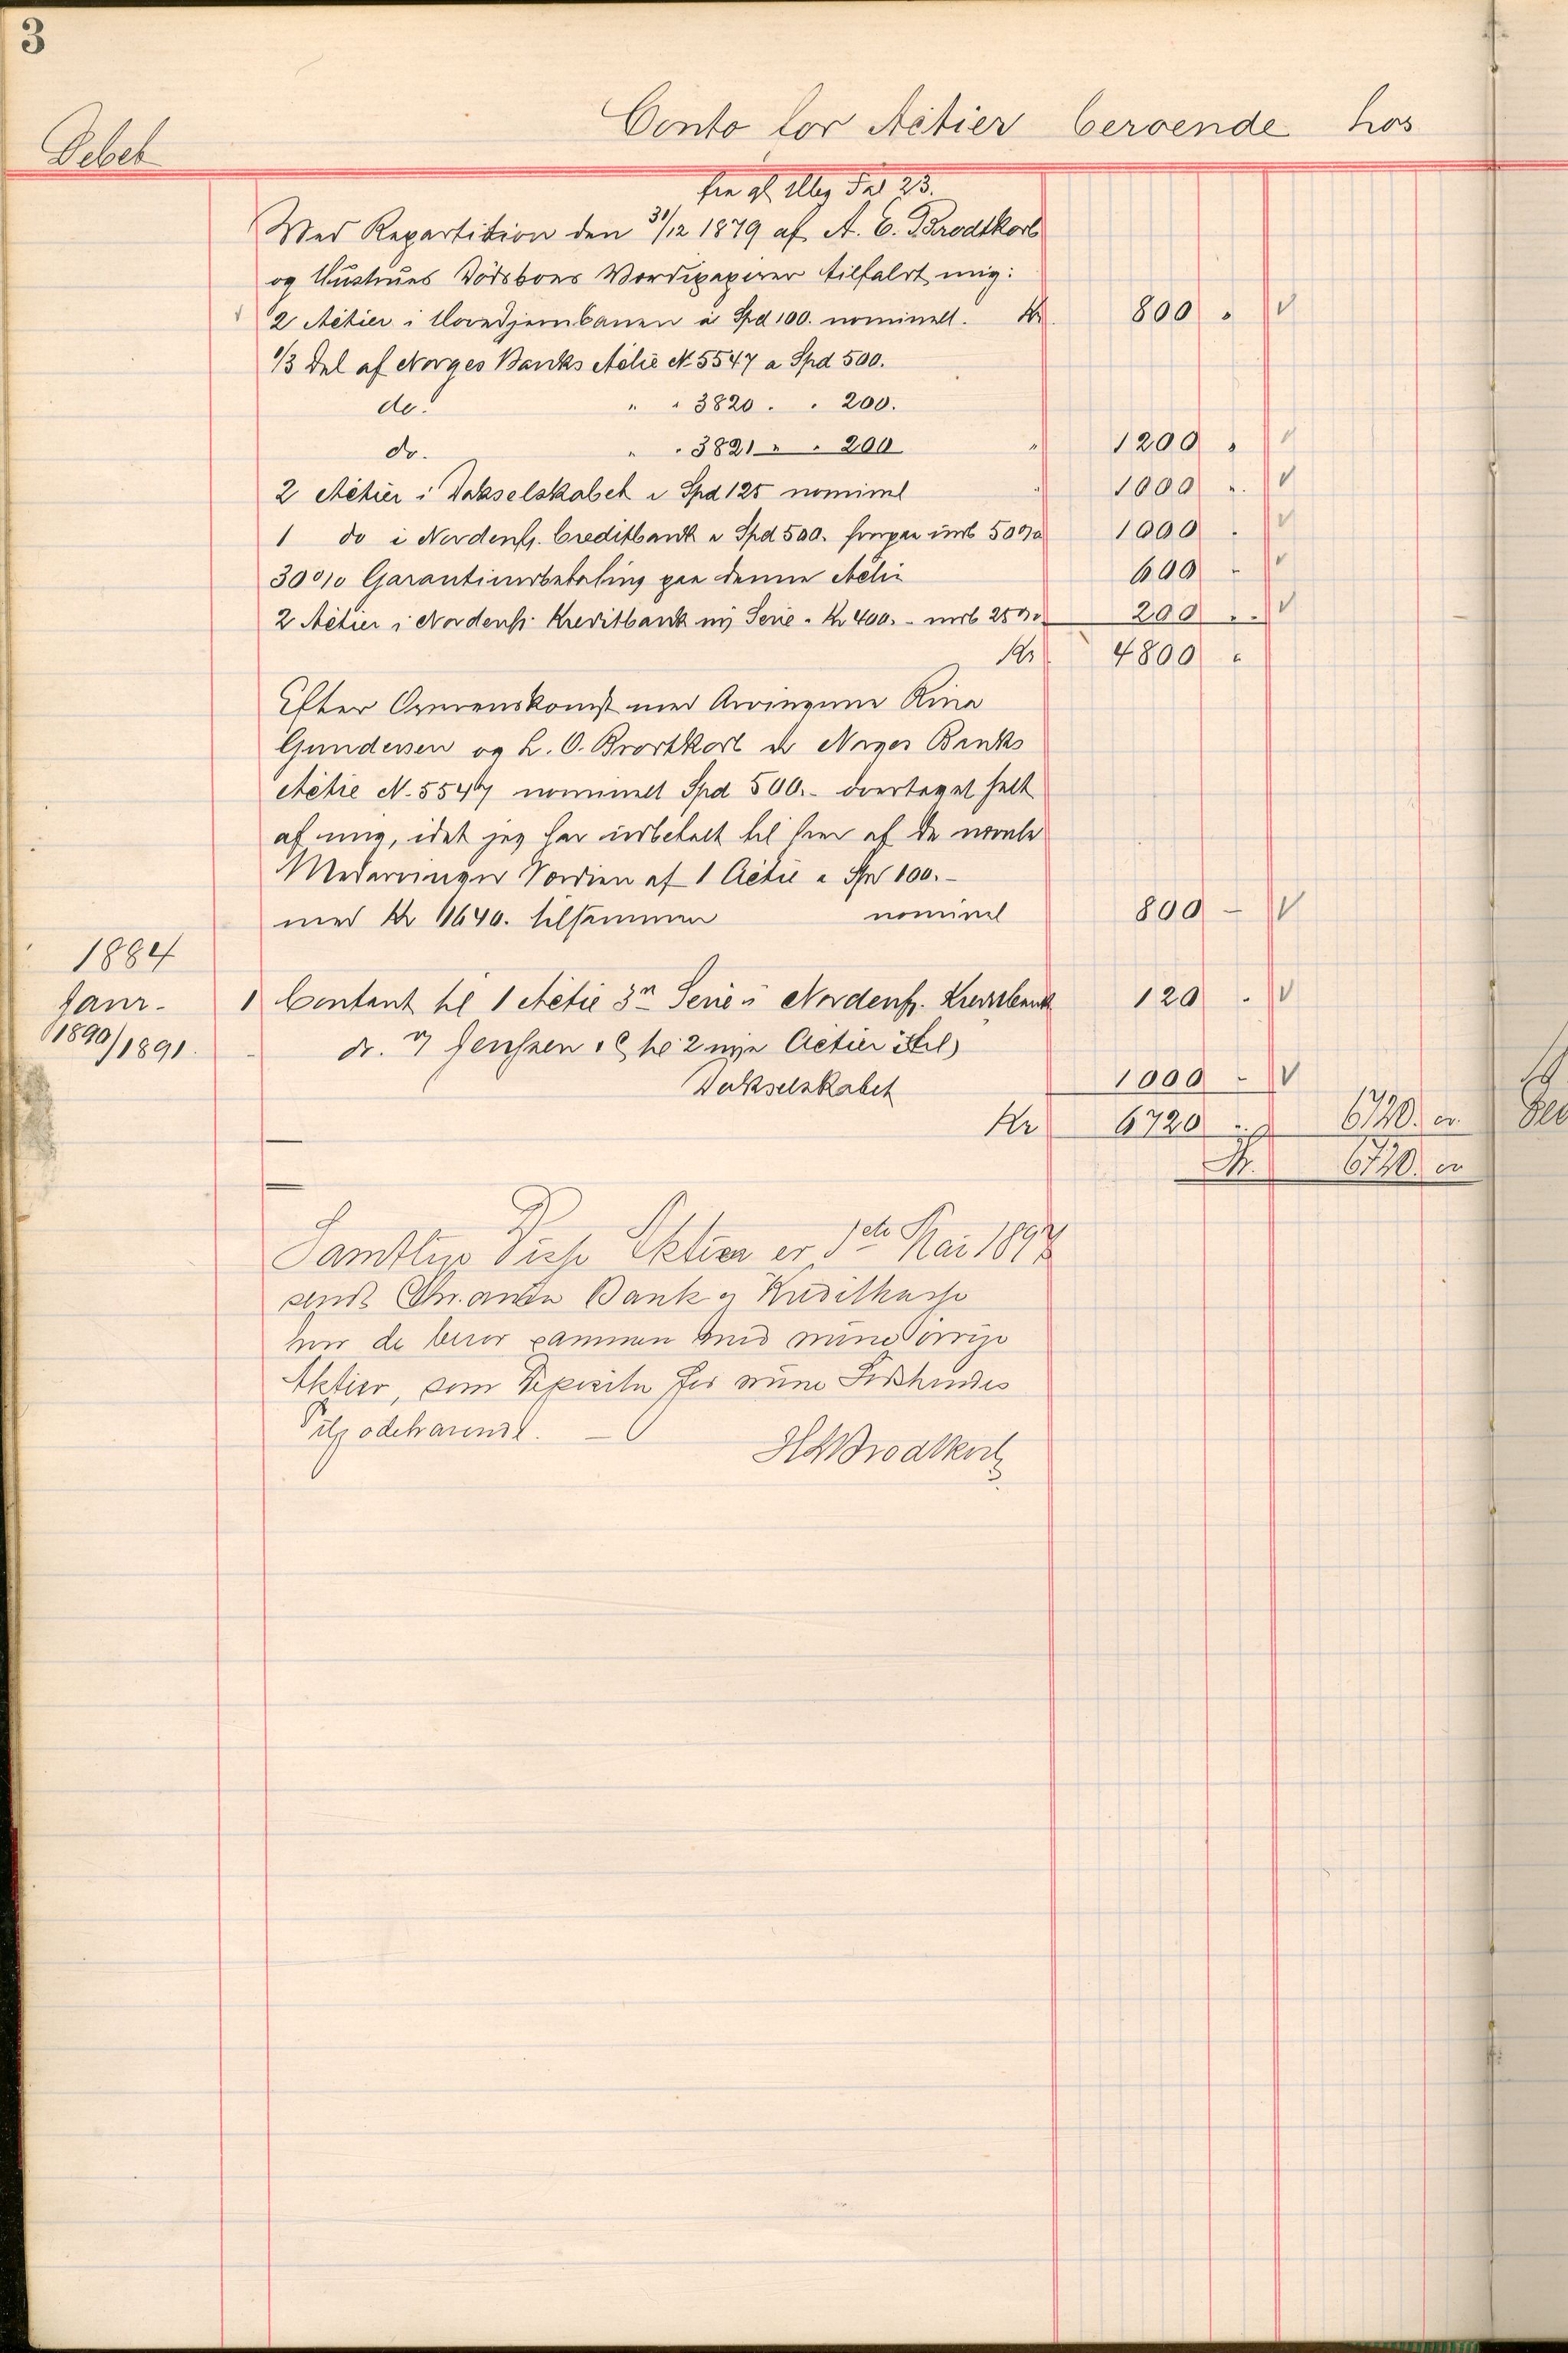 3
Debet
Conto for Actier beroende hos
fra gl. Dec 23.
Ved Repartition den 31/12 1879 af A. E. Brodtkorb
og Hustrues Dödsboes Værdipapirer tilfaldt mig:
2 Actier i Hovedjernbanen à Spd 100. nominelt. Kr 800 "
1/3 Del af Norges Banks Actie N. 5547 a Spd 500.
do. " " 3820 . . 200.
do. " " 3821 " . 200 " 1200 "
2 Actier i Dokselskabet à Spd 125 nominel " 1000 "
1 do i Nordenfj. Creditbank a Spd 500. hvorpaa indb 50% 1000 "
30% Garantiindbetaling paa denne Actie 600 "
2 Actier i Nordenfj. Kreditbank ny Serie a Kr 400. - indb 25% 200 "
Kr 4800 "
Efter Overenskomst med Arvingerne Rina
Gundersen og L. O. Brodtkorb er Norges Banks
Actie N. 5547 nominelt Spd 500.- overtaget helt
af mig, idet jeg har indbetalt til hver af de nævnte
Medarvinger Værdien af 1 Actie a Spd 100.-
med Kr 1640. tilsammen nominel 800 -
1884
Janr. 1 Contant til 1 Actie 3die Serie i Nordenfj. Kreditbank 120 .
1890/1891. do. Jenssen & C til 2 nye Actier i
Dokselskabet 1000 -
Kr 6720 6720.
Kr. 6720.
Samtlige disse Aktier er 1ste Mai 1897
sendt Chr.ania Bank og Kreditkasse
hvor de beror sammen med mine övrige
Aktier, som Deposita for mine
HABrodtkorb